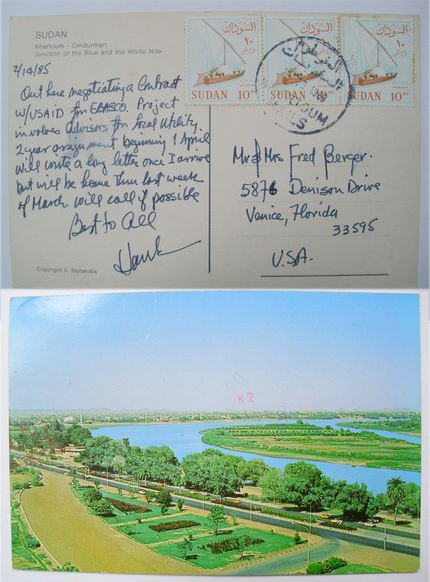 SUDAN
Khartoum - Omdurman
Junction of the Blue and the White Nile
2/14/85
Out here negotiating a Contract
w/USAID for EBASCO. Project
involves Advisors for local Utility.
2 year assignment beginning 1 April
will write a long letter once I arrive
but will be home thru last week
of March. will call if possible
Best to All
Hank
Copyright X. Stefanidis
السودان
١٠
SUDAN 10
السودان
١٠
SUDAN 10
السودان
١٠
SUDAN 10
Mr & Mrs Fred Berger.
5876 Denison Drive
Venice, Florida
33595
U.S.A.
K2